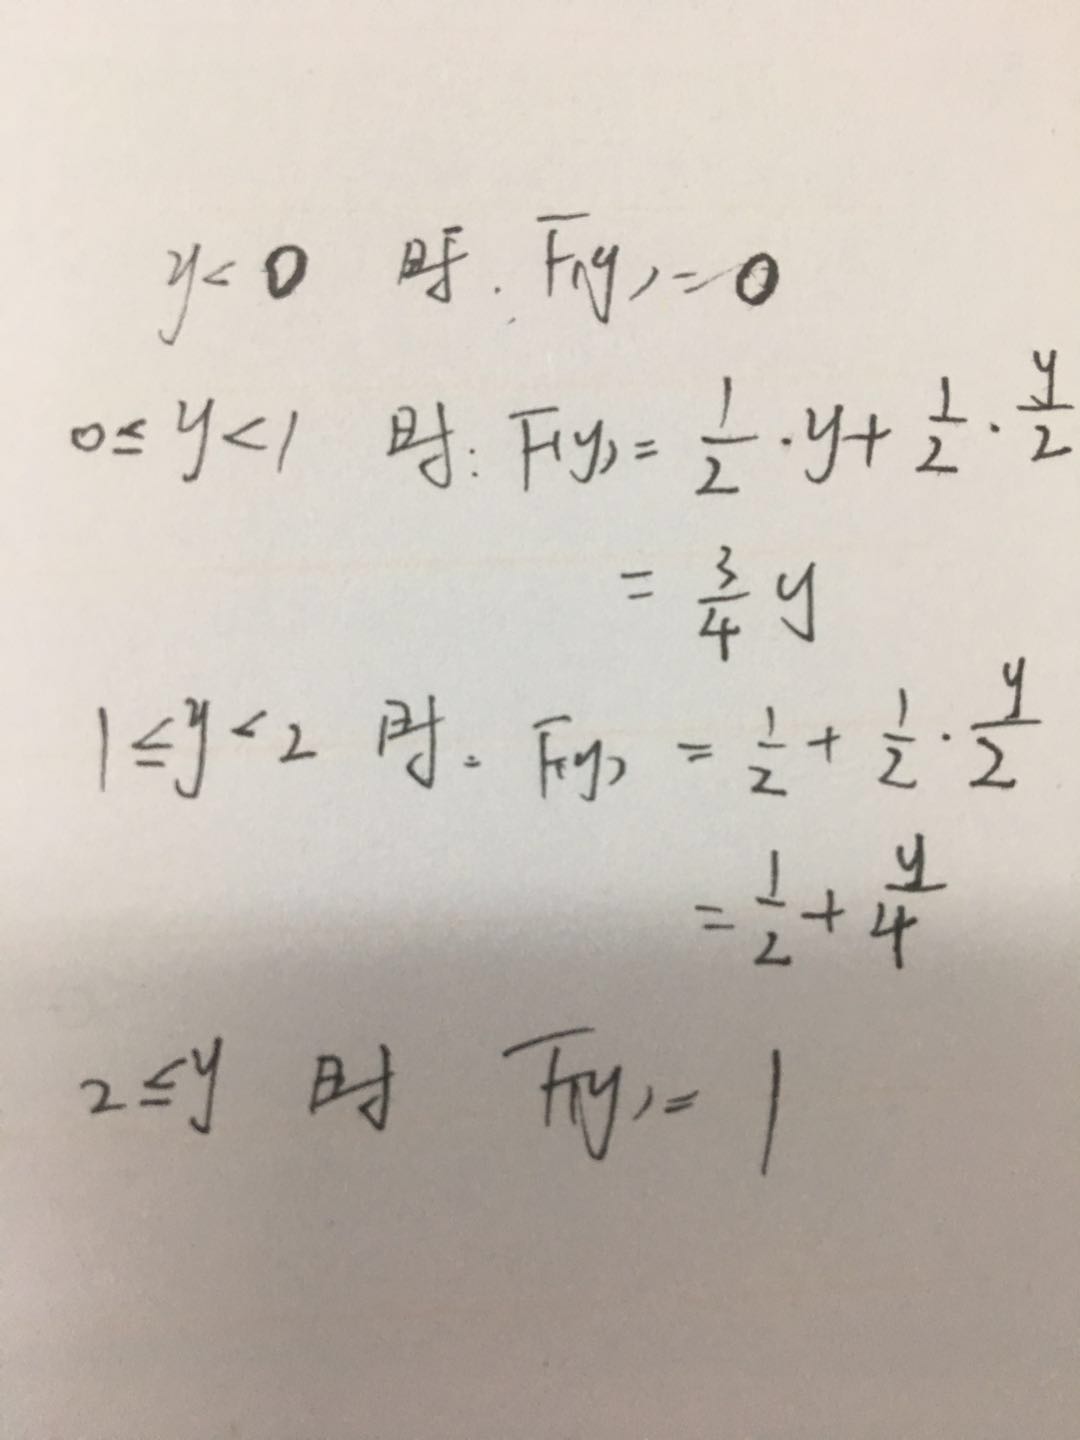 y<0 时. F(y)=0
0≤y<1 时: F(y)= 1/2·y+1/2·y/2
= 3/4 y
1≤y<2 时: F(y) = 1/2+1/2·y/2
= 1/2+y/4
2≤y 时 F(y)=1